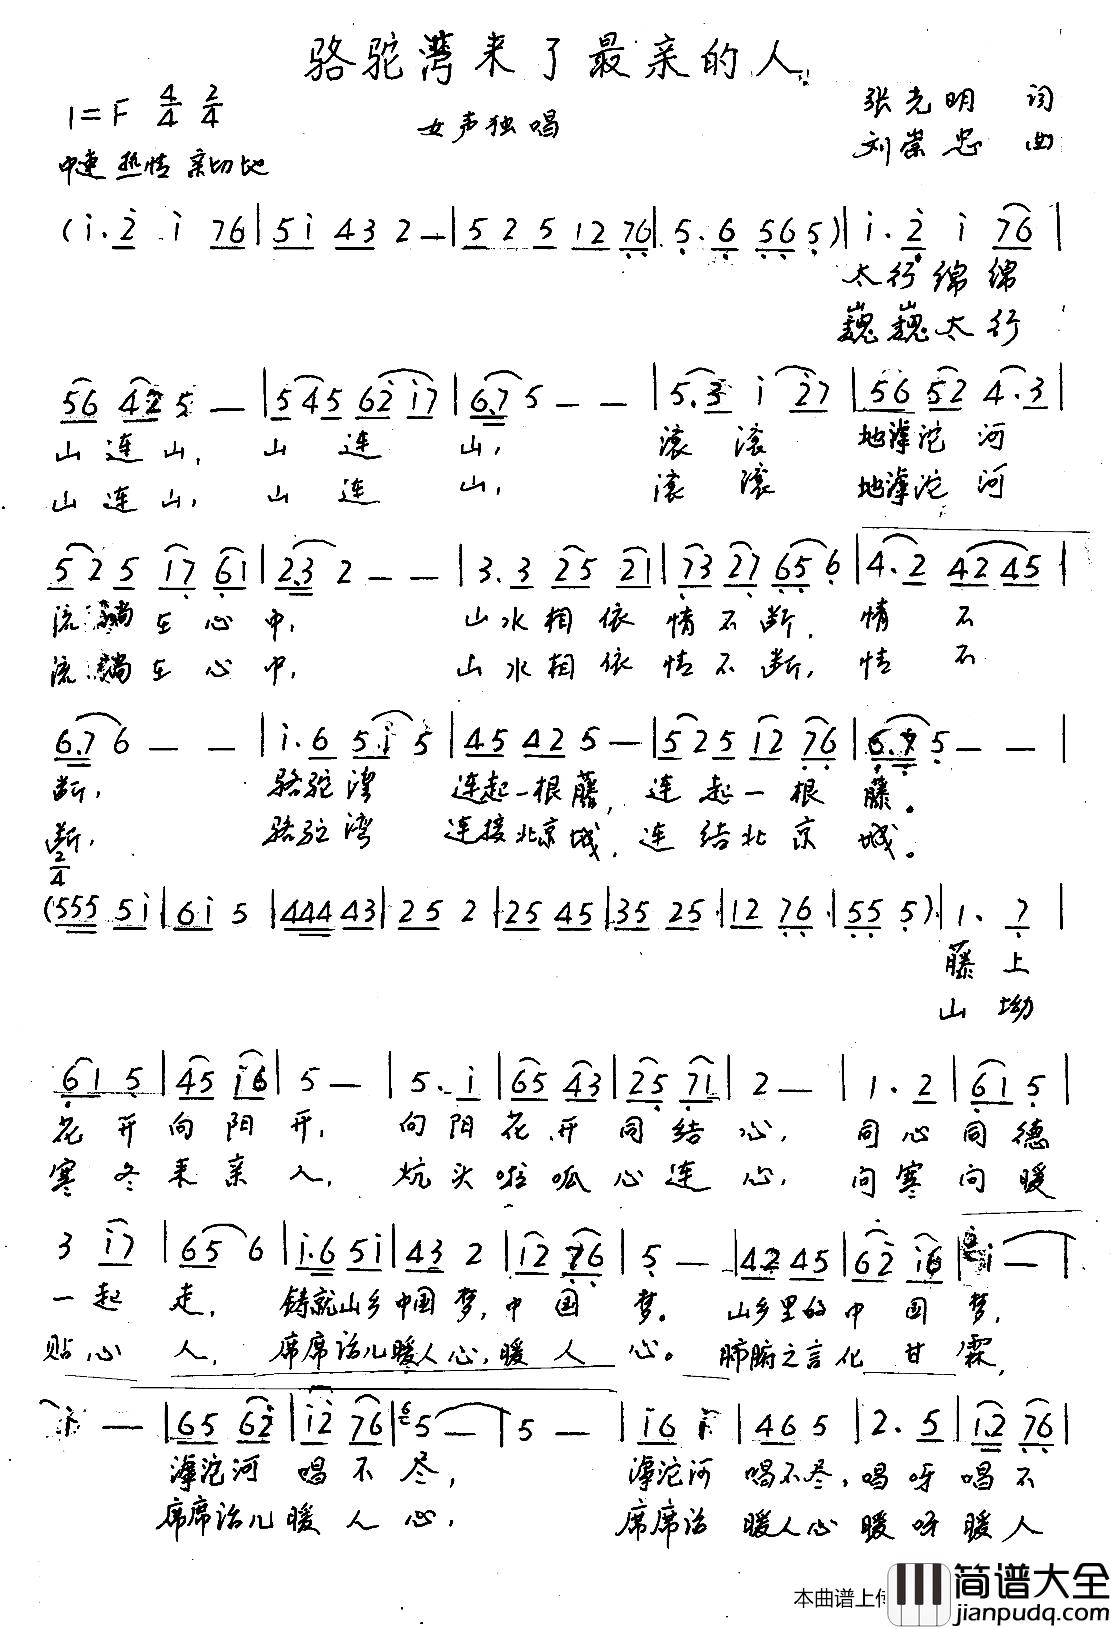 骆驼湾来了最亲的人
1=F 4/4 2/4
女声独唱
张光明 词
刘崇忠 曲
中速 热情 亲切地
(i. 2 i 76 | 5i 43 2 — | 5 2 5 12 76 | 5. 6 56 5) | i. 2 i 76 |
太行绵绵
巍巍太行
56 42 5 — | 545 62 i7 | 6.7 5 — — | 5.3 i 27 | 56 52 4.3 |
山连山, 山连山, 滚滚地滹沱河
山连山, 山连山, 滚滚地滹沱河
5 2 5 i7 61 | 2.3 2 — — | 3.3 25 21 | 73 27 65 6 | 4.2 42 45 |
流淌在心中, 山水相依情不断, 情不
流淌在心中, 山水相依情不断, 情不
6.7 6 — — | i.6 5.i 5 | 45 42 5 — | 525 12 76 | 6.7 5 — — |
断, 骆驼湾连起一根藤, 连起一根藤。
断, 骆驼湾连接北京城, 连结北京城。
2/4
(555 5i | 6i 5 | 444 43 | 25 2 | 25 45 | 35 25 | 12 76 | 55 5) | 1. 7 |
藤上
山坳
61 5 | 45 i6 | 5 — | 5. i | 65 43 | 25 71 | 2 — | 1. 2 | 61 5 |
花开向阳开, 向阳花开同结心, 同心同德
寒冬来亲人, 炕头啦呱心连心, 问寒问暖
3 i7 | 65 6 | i.6 5i | 43 2 | 12 76 | 5 — | 42 45 | 62 i6 | i — |
一起走, 铸就山乡中国梦, 中国梦。山乡里的中国梦,
贴心人, 席席话儿暖人心, 暖人心。肺腑之言化甘霖,
i — | 65 62 | i2 76 | 5 — | 5 — | i6 i | 46 5 | 2. 5 | 12 76 |
滹沱河唱不尽, 滹沱河唱不尽, 唱呀唱不
席席话儿暖人心, 席席话暖人心暖呀暖人
本曲谱上传
简谱大全
jianpudq.com